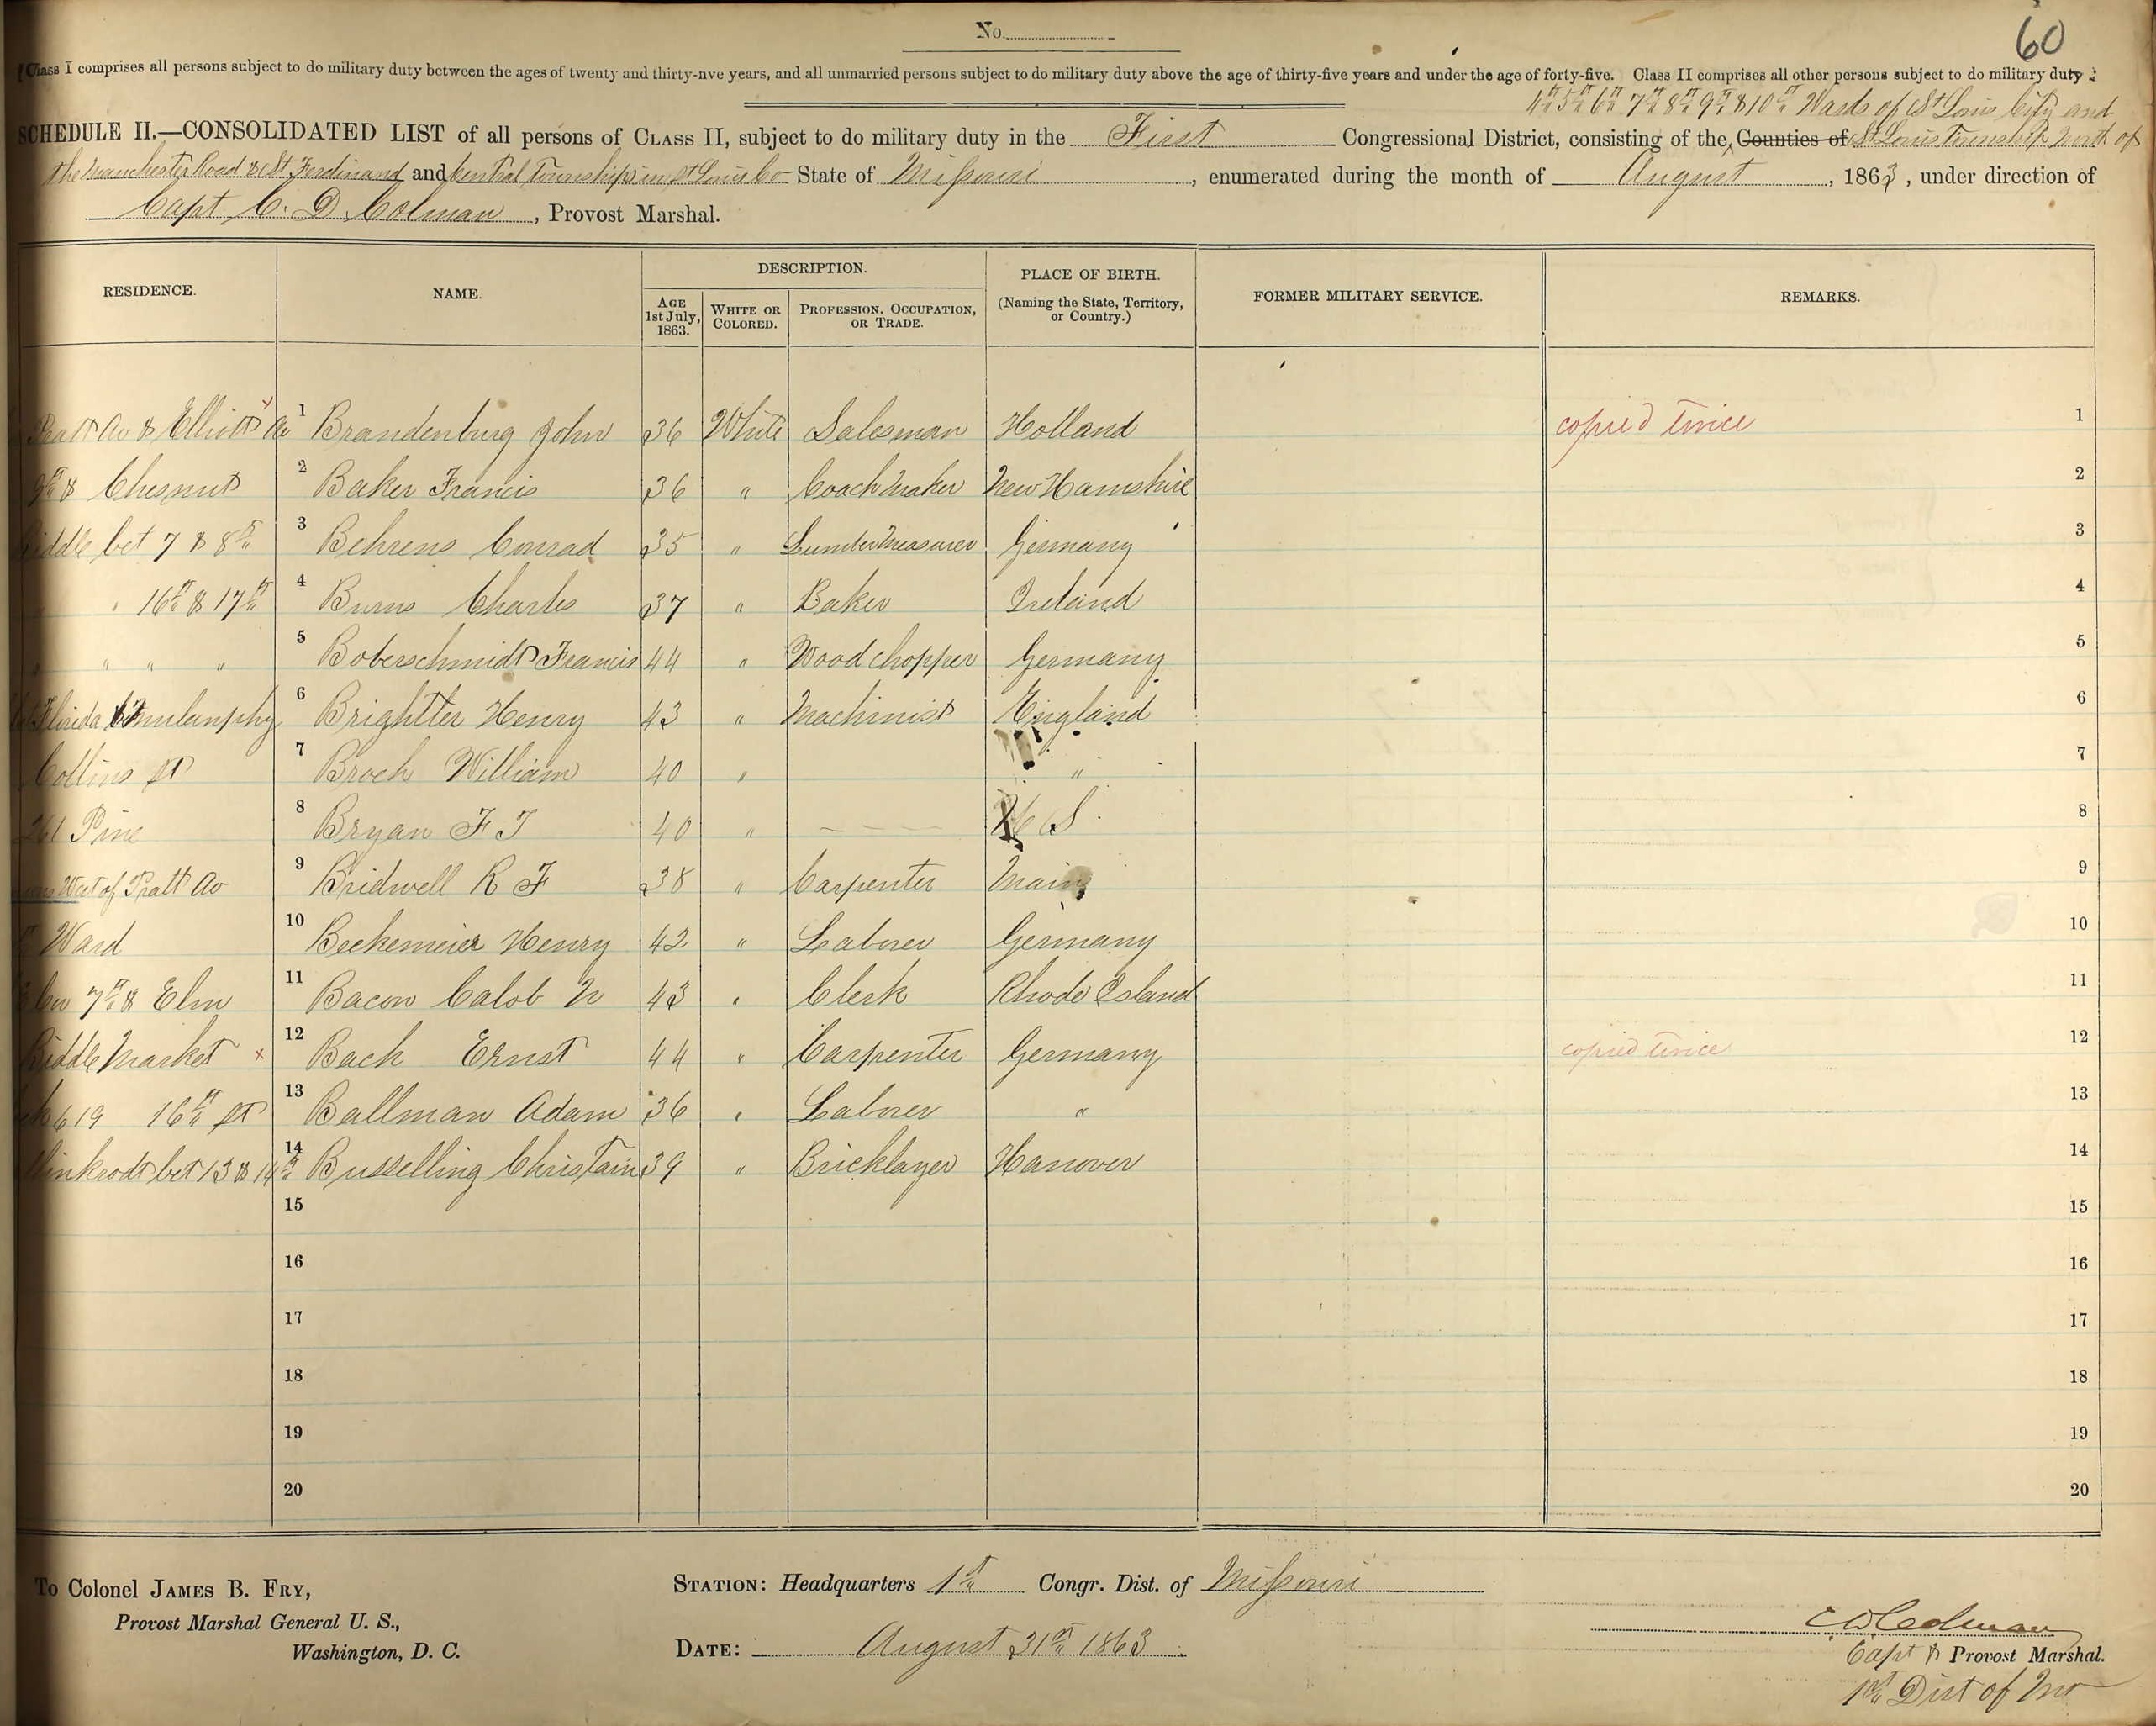 No.
60
Class I comprises all persons subject to do military duty between the ages of twenty and thirty-five years, and all unmarried persons subject to do military duty above the age of thirty-five years and under the age of forty-five. Class II comprises all other persons subject to do military duty
4th 5th 6th 7th 8th 9th & 10th Wards of St Louis City and
SCHEDULE II.—CONSOLIDATED LIST of all persons of CLASS II, subject to do military duty in the First Congressional District, consisting of the Counties of St Louis Township North of
the Manchester Road & St Ferdinand and Central Townships in St Louis Co State of Missouri, enumerated during the month of August, 1863, under direction of
Capt C. D. Colman, Provost Marshal.
RESIDENCE. NAME. DESCRIPTION. PLACE OF BIRTH. FORMER MILITARY SERVICE. REMARKS.
AGE 1st July, 1863. WHITE OR COLORED. PROFESSION, OCCUPATION, OR TRADE. (Naming the State, Territory, or Country.)
Pratt Av & Elliott Av 1 Brandenburg John 36 White Salesman Holland copied twice 1
9th & Chesnut 2 Baker Francis 36 " Coach Maker New Hamshire 2
Biddle bet 7 & 8th 3 Behrens Conrad 35 " Lumber Measurer Germany 3
" 16th & 17th 4 Burns Charles 37 " Baker Ireland 4
" " " " 5 Boberschmidt Francis 44 " Wood chopper Germany 5
Florida & Mulanphy 6 Brightter Henry 43 " Machinist England 6
Collins St 7 Broch William 40 " " 7
261 Pine 8 Bryan F T 40 " — — — U S 8
West of Pratt Av 9 Bridwell R F 38 " Carpenter Maine 9
Ward 10 Beckemeier Henry 42 " Laborer Germany 10
Cor 7th & Elm 11 Bacon Calob W 43 " Clerk Rhode Island 11
Biddle Market x 12 Bach Ernst 44 " Carpenter Germany copied twice 12
619 16th St 13 Ballman Adam 36 " Laborer " 13
bet 13 & 14th 14 Busselling Christain 39 " Bricklayer Hanover 14
15 15
16 16
17 17
18 18
19 19
20 20
To Colonel JAMES B. FRY,
Provost Marshal General U. S.,
Washington, D. C.
STATION: Headquarters 1st Congr. Dist. of Missouri
DATE: August 31st 1863
C D Colman
Capt & Provost Marshal.
1st Dist of Mo